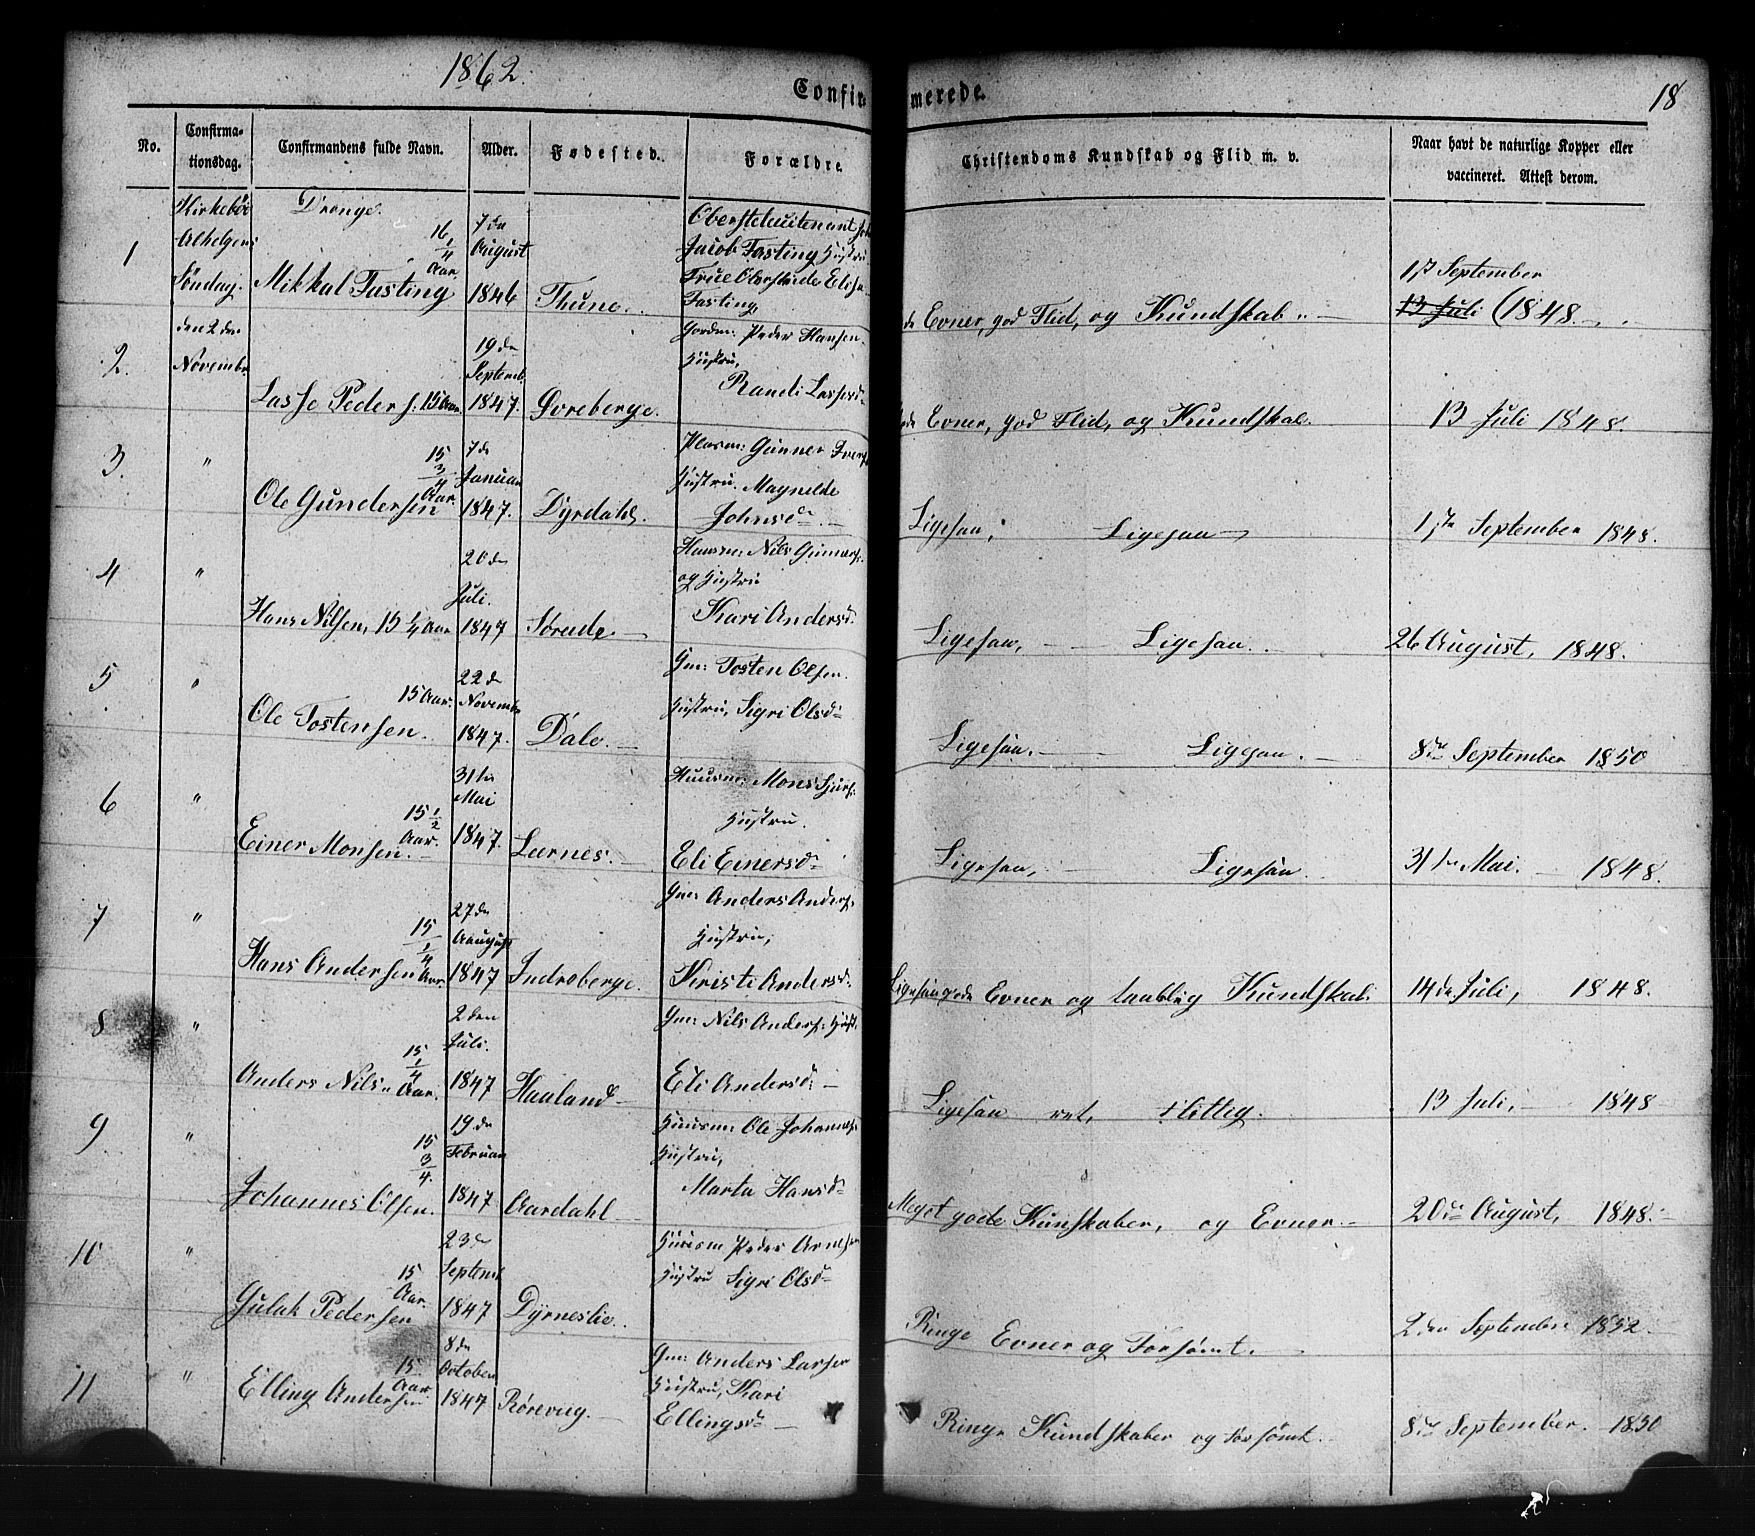 1862.
Confirmerede.
18
No.
Confirmationsdag.
Confirmandens fulde Navn.
Alder.
Fødested.
Forældre
Christendoms Kundskab og Flid m. v.
Naar havt de naturlige Kopper eller
vaccineret. Attest derom.
Kirkebøe
Alhelgens
Söndag.
den 2 den
Novembr
Drenge.
1
Mikkal Fasting
16 1/4 Aar
7 de August 1846
Thune.
Obersteleuitenant
Jacob Fasting Hustru
Elisa
Fasting,
Evner, god Flid, og Kundskab.
1st September
13 Juli (1848.
2.
Lasse Peders: 15 Aar
19 de Septemb. 1847.
Øvreberge.
Peder Hansen
Hustru,
Randi Lassesd
Evner, god Flid, og Kundskab.
13 Juli 1848.
3.
"
Ole Gundersen
15 3/4 Aar.
7 de Januar 1847.
Dÿrdahl.
Gunner
Hustru. Magnilde
Johnsd
Ligesaa; Ligesaa
1ste September 1848.
4
"
Hans Nilsen, 15 1/4 Aar
20 de Juli. 1847
Sörede.
Nils Gunners:
og Hustru
Kari Andersd
Ligesaa, Ligesaa.
26 August, 1848.
5
"
Ole Tostensen.
15 Aar.
22 de Novembr 1847.
Dale.
Gm: Tosten Olsen.
Hustru, Sigri Olsd
Ligesaa. Ligesaa.
8de September 1850
6
"
Einer Monsen.
15 1/2 Aar.
31te Mai 1847.
Lærnes.
Huusm: Mons
Hustru.
Eli Einersd
Ligesaa, Ligesaa.
31te Mai. 1848.
7
"
Hans Andersen
15 1/4 Aar.
27 de Aaugust 1847
Indreberge.
Gm: Anders Anders:
Hustru;
Kristi Andersd:
Ligesaa gode Evner og taablig Kundskab.
14 de Juli, 1848.
8
"
Anders Nils
15 1/4 Aar.
2 den Juli. 1847
Haaland
Gm: Nils Anders: Hust.
Eli Andersd:
Ligesaa ret, flitteg.
13 Juli, 1848
9
"
Johannes Olsen.
15 3/4.
19 de Februar 1847
Aardahl
Huusm: Ole Johannes:
Hustru,
Marta Hansd
Meget gode Kunskaber, og Evner.
20de August, 1848.
10
"
Gulak Pedersen
15 Aar.
23 de Septemb 1847
Dÿrneslie.
Huusm Peder
Hustru Sigri Olsd
Ringe Evner og Forsömt.
2den September 1852.
11
"
Elling Andersen
15 Aar.
8 de October 1847
Rörevug.
Gm: Anders Larsen
Hustru, Kari
Ellingsd
Ringe Kundskaber og forsömt.
8de September. 1850